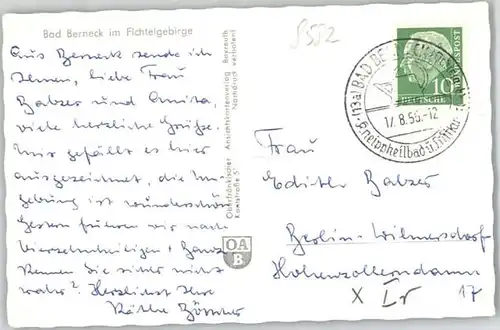 Bad Berneck im Fichtelgebirge
5552
Aus Berneck sende ich
Ihnen, liebe Frau
Balzer und Anita,
viele herzliche Grüße.
Mir gefällt es hier
ausgezeichnet, die Um-
gebung ist wunderschön
Gestern fuhren wir nach
Vierzehnheiligen + Banz
Kennen Sie sicher nicht
wahr? Herzlichst Ihre
Käthe
Oberfränkischer Ansichtskartenverlag Bayreuth
Kanalstraße 5 Nachdruck verboten!
OA
B
(13a) BAD BERNECK
17.8.56.-12
Kneippheilbad u.
DEUTSCHE
BUNDESPOST
10
Frau
Edith Balzer
Berlin-Wilmersdorf
Hohenzollerndamm
17